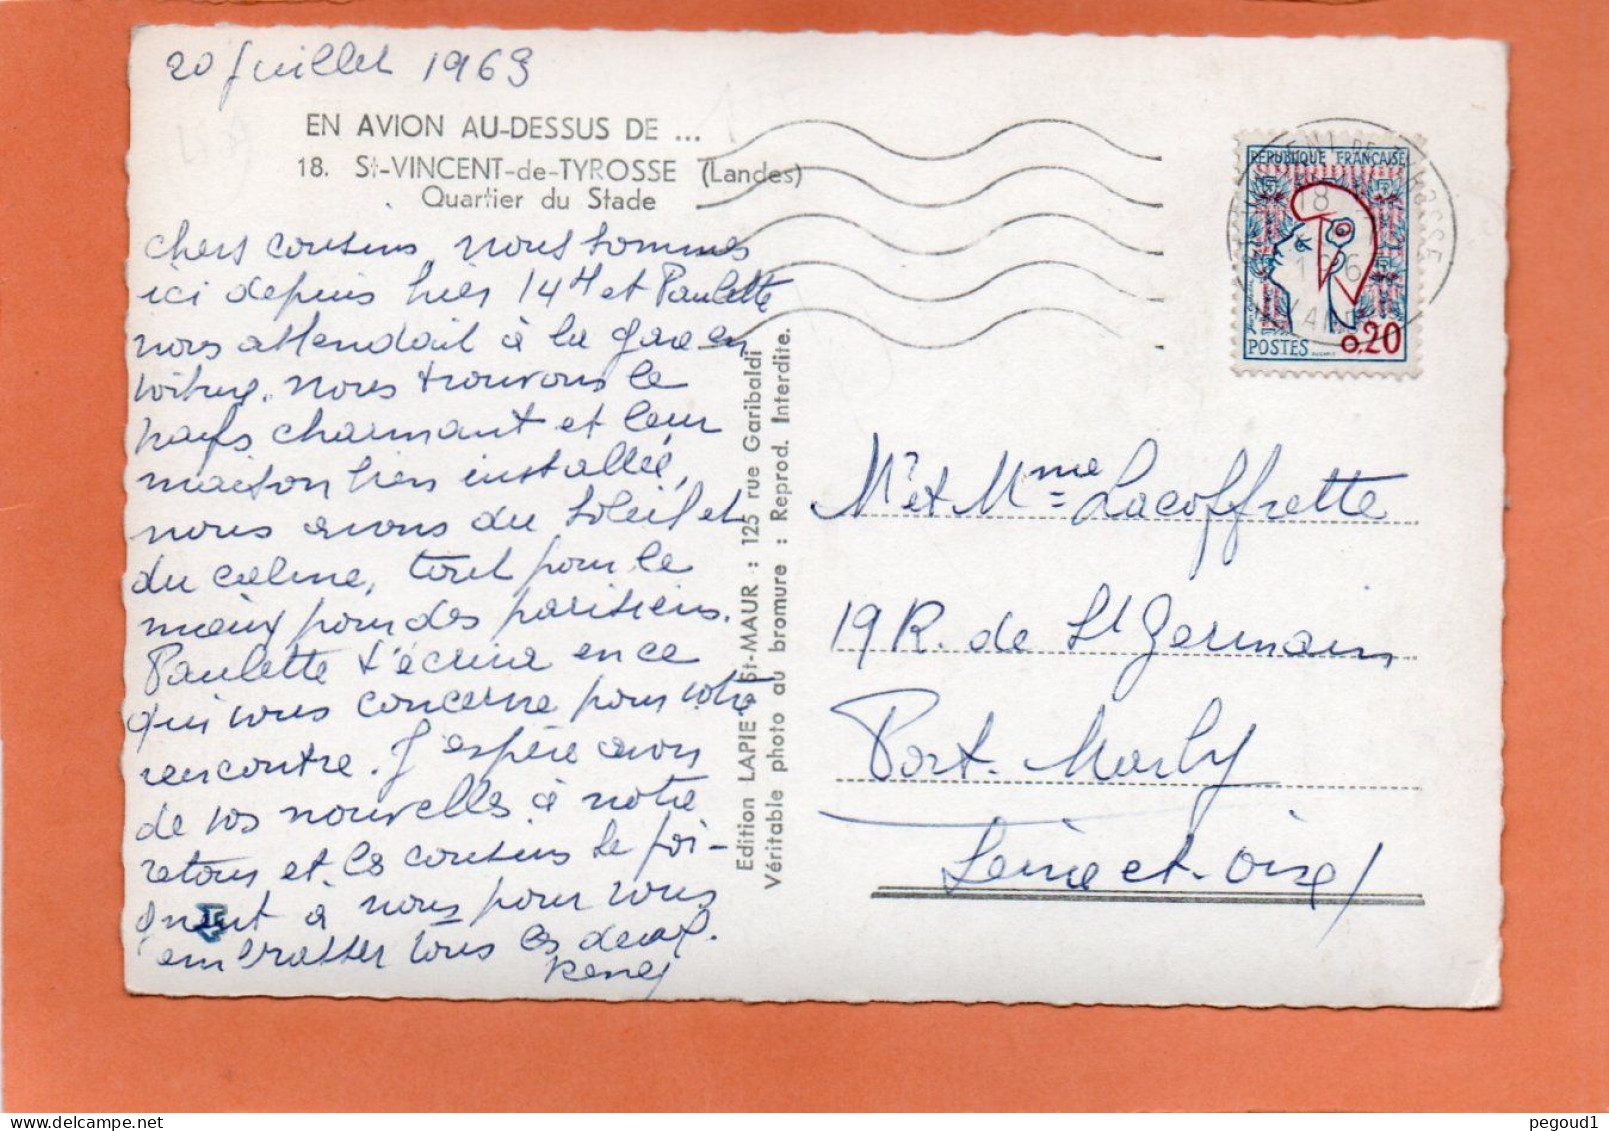 20 Juillet 1963
EN AVION AU-DESSUS DE ...
18. St-VINCENT-de-TYROSSE (Landes)
Quartier du Stade
chers cousins, nous sommes
ici depuis hier 14H et Paulette
nous attendait à la gare en
voiture. nous trouvons le
pays charmant et leur
maison bien installée,
nous avons du soleil et
du calme, tout pour le
mieux pour des parisiens.
Paulette t'écrira en ce
qui vous concerne pour votre
rencontre. J'espère avoir
de vos nouvelles à notre
retour et les cousins se joi-
gnent à nous pour vous
embrasser tous les deux.
René
Edition LAPIE St-MAUR : 125 rue Garibaldi
Véritable photo au bromure : Reprod. Interdite.
RÉPUBLIQUE FRANÇAISE
POSTES 0,20
18
196
TYROSSE
LANDES
Mr et Mme Lacoffrette
19 R. de St Germain
Port-Marly
Seine et-Oise
pegoud1